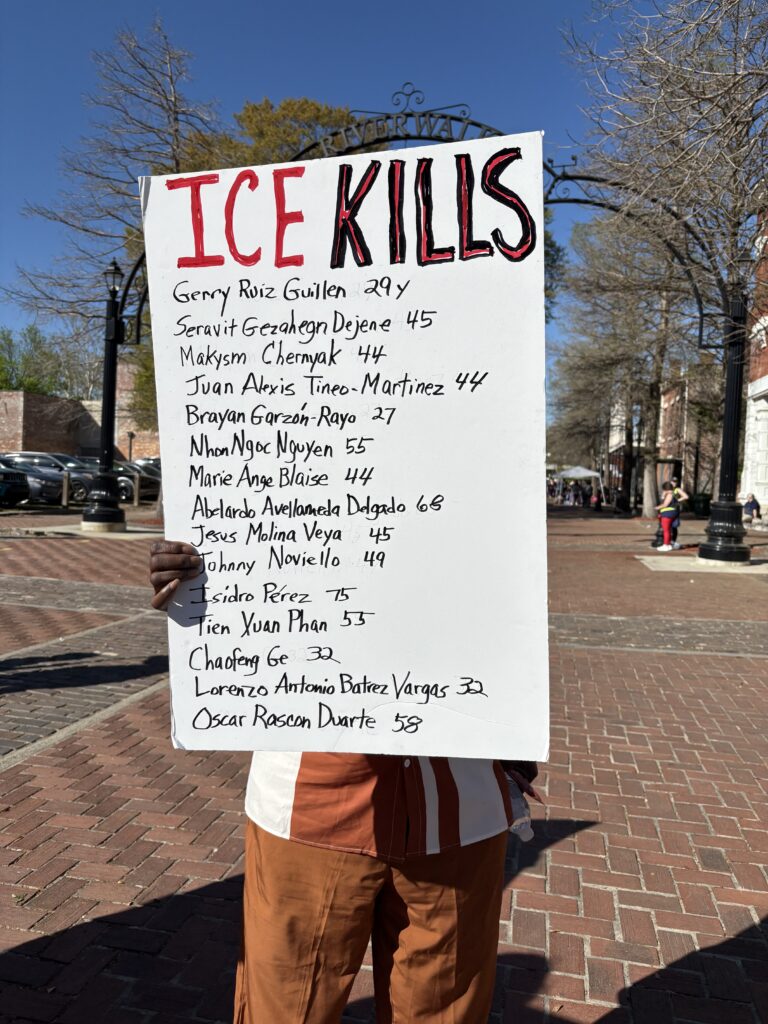 RIVERWALK
ICE KILLS
Gerry Ruiz Guillen 29y
Seravit Gezahegn Dejene 45
Makysm Chernyak 44
Juan Alexis Tineo-Martinez 44
Brayan Garzón-Rayo 27
Nhon Ngoc Nguyen 55
Marie Ange Blaise 44
Abelardo Avellameda Delgado 68
Jesus Molina Veya 45
Johnny Noviello 49
Isidro Pérez 75
Tien Xuan Phan 55
Chaofeng Ge 32
Lorenzo Antonio Batrez Vargas 32
Oscar Rascon Duarte 58